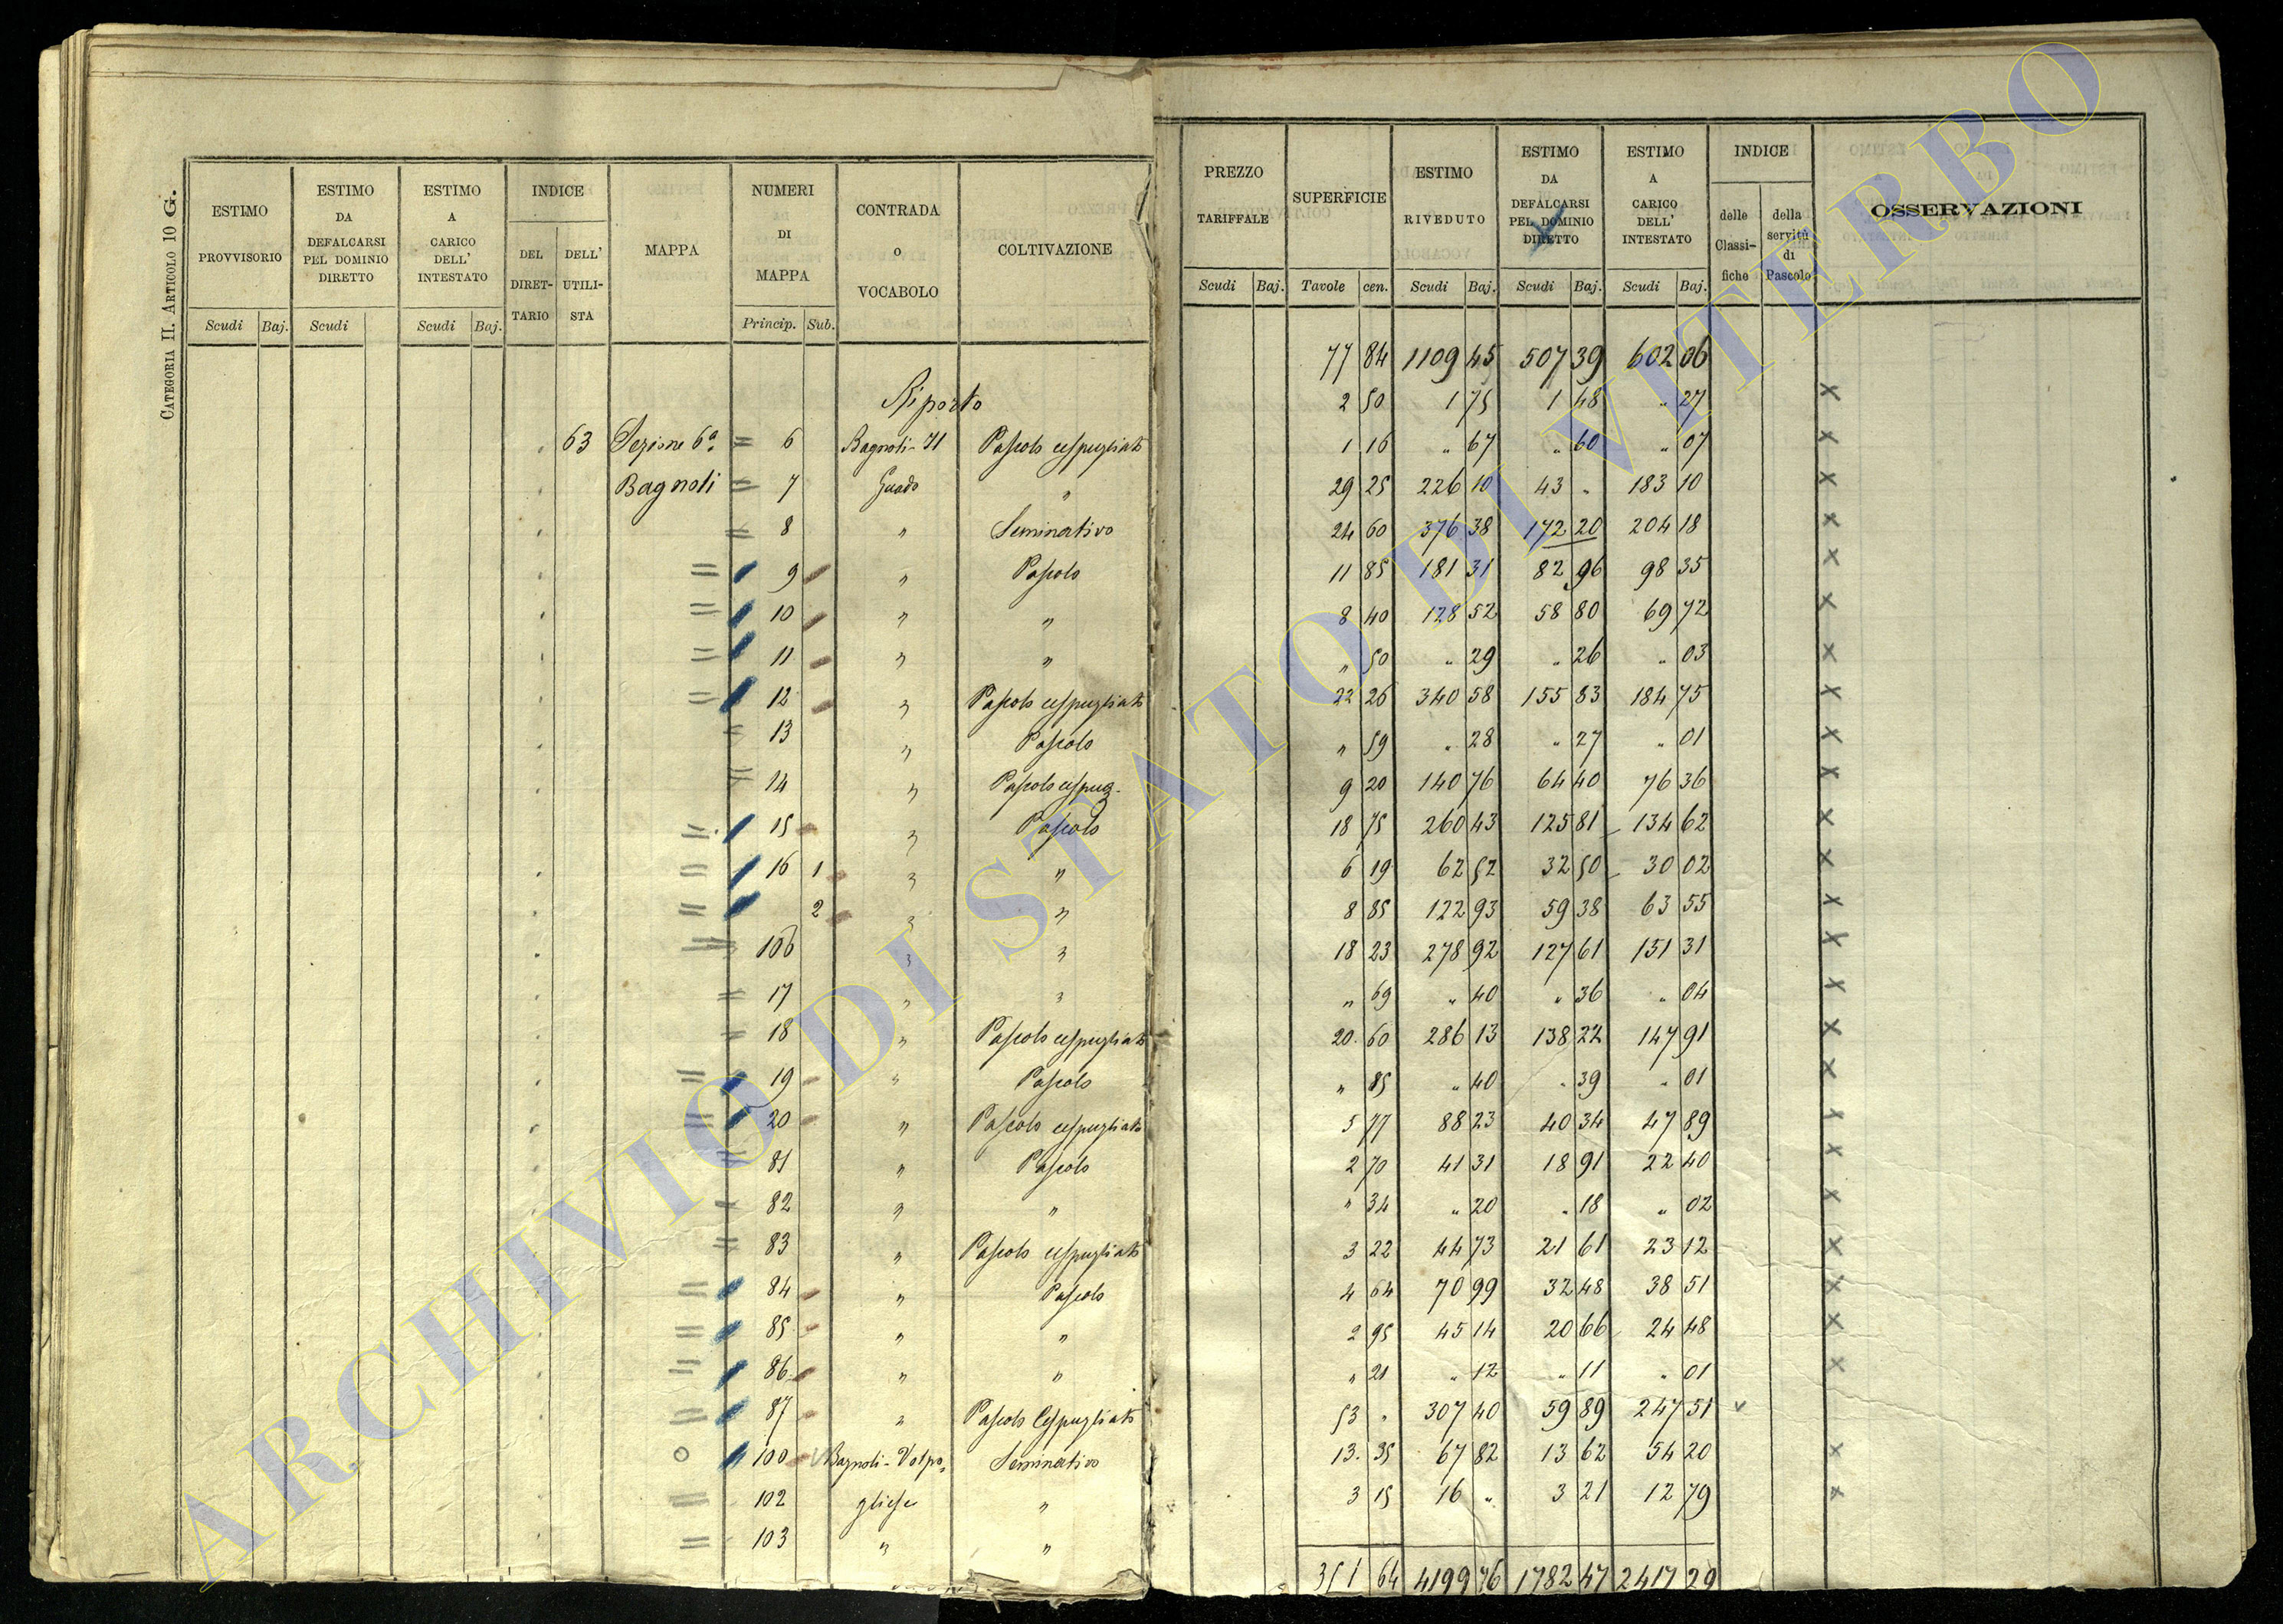 CATEGORIA II. ARTICOLO 10 G.
ESTIMO PROVVISORIO
ESTIMO DA DEFALCARSI PEL DOMINIO DIRETTO
ESTIMO A CARICO DELL' INTESTATO
INDICE
DEL DIRET-TARIO
DELL' UTILI-STA
MAPPA
NUMERI DI MAPPA
CONTRADA O VOCABOLO
COLTIVAZIONE
Scudi Baj. Scudi Scudi Baj. Princip. Sub.
Riporto
63 Sezione 6ª = 6 Bagnoli-71 Pascolo cespugliato
Bagnoli = 7 Guado "
= 8 " Seminativo
= 9 " Pascolo
= 10 " "
= 11 " "
= 12 " Pascolo cespugliato
= 13 " Pascolo
= 14 " Pascolo cespug.
= 15 " Pascolo
= 16 1 " "
= 2 " "
= 106 " "
= 17 " "
= 18 " Pascolo cespugliato
= 19 " Pascolo
= 20 " Pascolo cespugliato
= 81 " Pascolo
= 82 " "
= 83 " Pascolo cespugliato
= 84 " Pascolo
= 85 " "
= 86 " "
= 87 " Pascolo Cespugliato
o 100 Bagnoli-Volpo= Seminativo
= 102 gliese "
= 103 " "
PREZZO TARIFFALE
SUPERFICIE
ESTIMO RIVEDUTO
ESTIMO DA DEFALCARSI PEL DOMINIO DIRETTO
ESTIMO A CARICO DELL' INTESTATO
INDICE
delle Classi-fiche
della servitù di Pascolo
OSSERVAZIONI
Scudi Baj. Tavole cen. Scudi Baj. Scudi Baj. Scudi Baj.
77 84 1109 45 507 39 602 06
2 50 1 75 1 48 " 27 x
1 16 " 67 " 60 " 07 x
29 25 226 10 43 " 183 10 x
24 60 376 38 172 20 204 18 x
11 85 181 31 82 96 98 35 x
8 40 128 52 58 80 69 72 x
" 50 " 29 " 26 " 03 x
22 26 340 58 155 83 184 75 x
" 59 " 28 " 27 " 01 x
9 20 140 76 64 40 76 36 x
18 75 260 43 125 81 134 62 x
6 19 62 52 32 50 30 02 x
8 85 122 93 59 38 63 55 x
18 23 278 92 127 61 151 31 x
" 69 " 40 " 36 " 04 x
20 60 286 13 138 22 147 91 x
" 85 " 40 " 39 " 01 x
5 77 88 23 40 34 47 89 x
2 70 41 31 18 91 22 40 x
" 34 " 20 " 18 " 02 x
3 22 44 73 21 61 23 12 x
4 64 70 99 32 48 38 51 x
2 95 45 14 20 66 24 48 x
" 21 " 12 " 11 " 01 x
53 " 307 40 59 89 247 51 v
13 35 67 82 13 62 54 20 x
3 15 16 " 3 21 12 79 x
351 64 4199 76 1782 47 2417 29
ARCHIVIO DI STATO DI VITERBO